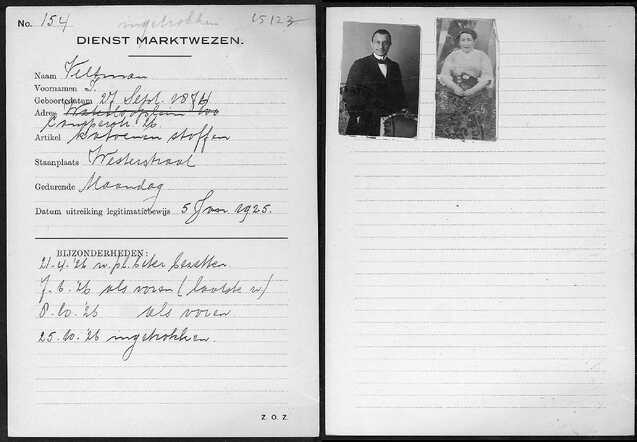 No. 154 ingetrokken 15123
DIENST MARKTWEZEN.
Naam Veltman
Voornamen S.
Geboortedatum 27 Sept. 1874
Adres Waterlooplein 100
26.
Artikel Katoenen stoffen
Staanplaats Westerstraat
Gedurende Maandag
Datum uitreiking legitimatiebewijs 5 Jan 1925.
BIJZONDERHEDEN:
21-4-'26 w. pl. beter bezetten
7-6-'26 als voren (laatste w)
8-10-'26 als voren
25-10-'26 ingetrokken.
Z. O. Z.